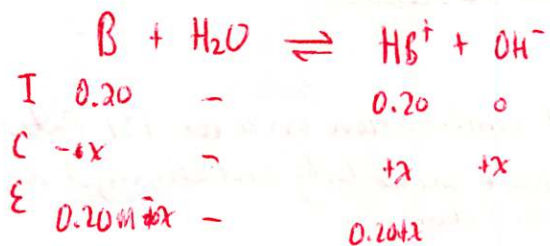 B + H₂O ⇌ HB⁺ + OH⁻
I 0.20 – 0.20 0
C -x – +x +x
E 0.20 – 0.20+x